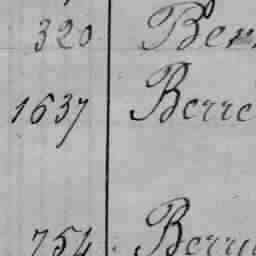 320 Ber
1637 Berre
754 Berry